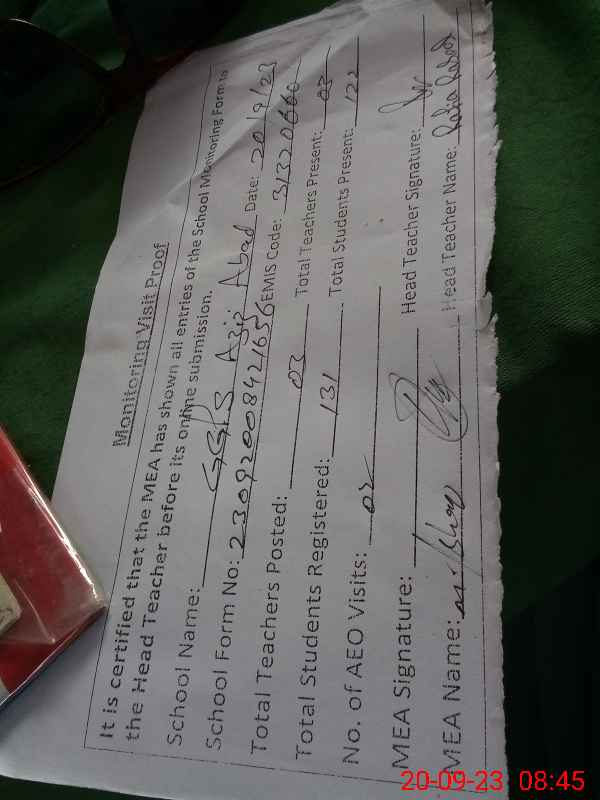 Monitoring Visit Proof
It is certified that the MEA has shown all entries of the School Monitoring Form to
the Head Teacher before its online submission.
School Name: GGPS Aziz Abad Date: 20/9/23
School Form No: 23092008421656 EMIS Code: 31320660
Total Teachers Posted: 03 Total Teachers Present: 03
Total Students Registered: 131 Total Students Present: 122
No. of AEO Visits: 02
MEA Signature: Head Teacher Signature:
MEA Name: Head Teacher Name: Rabia
20-09-23 08:45